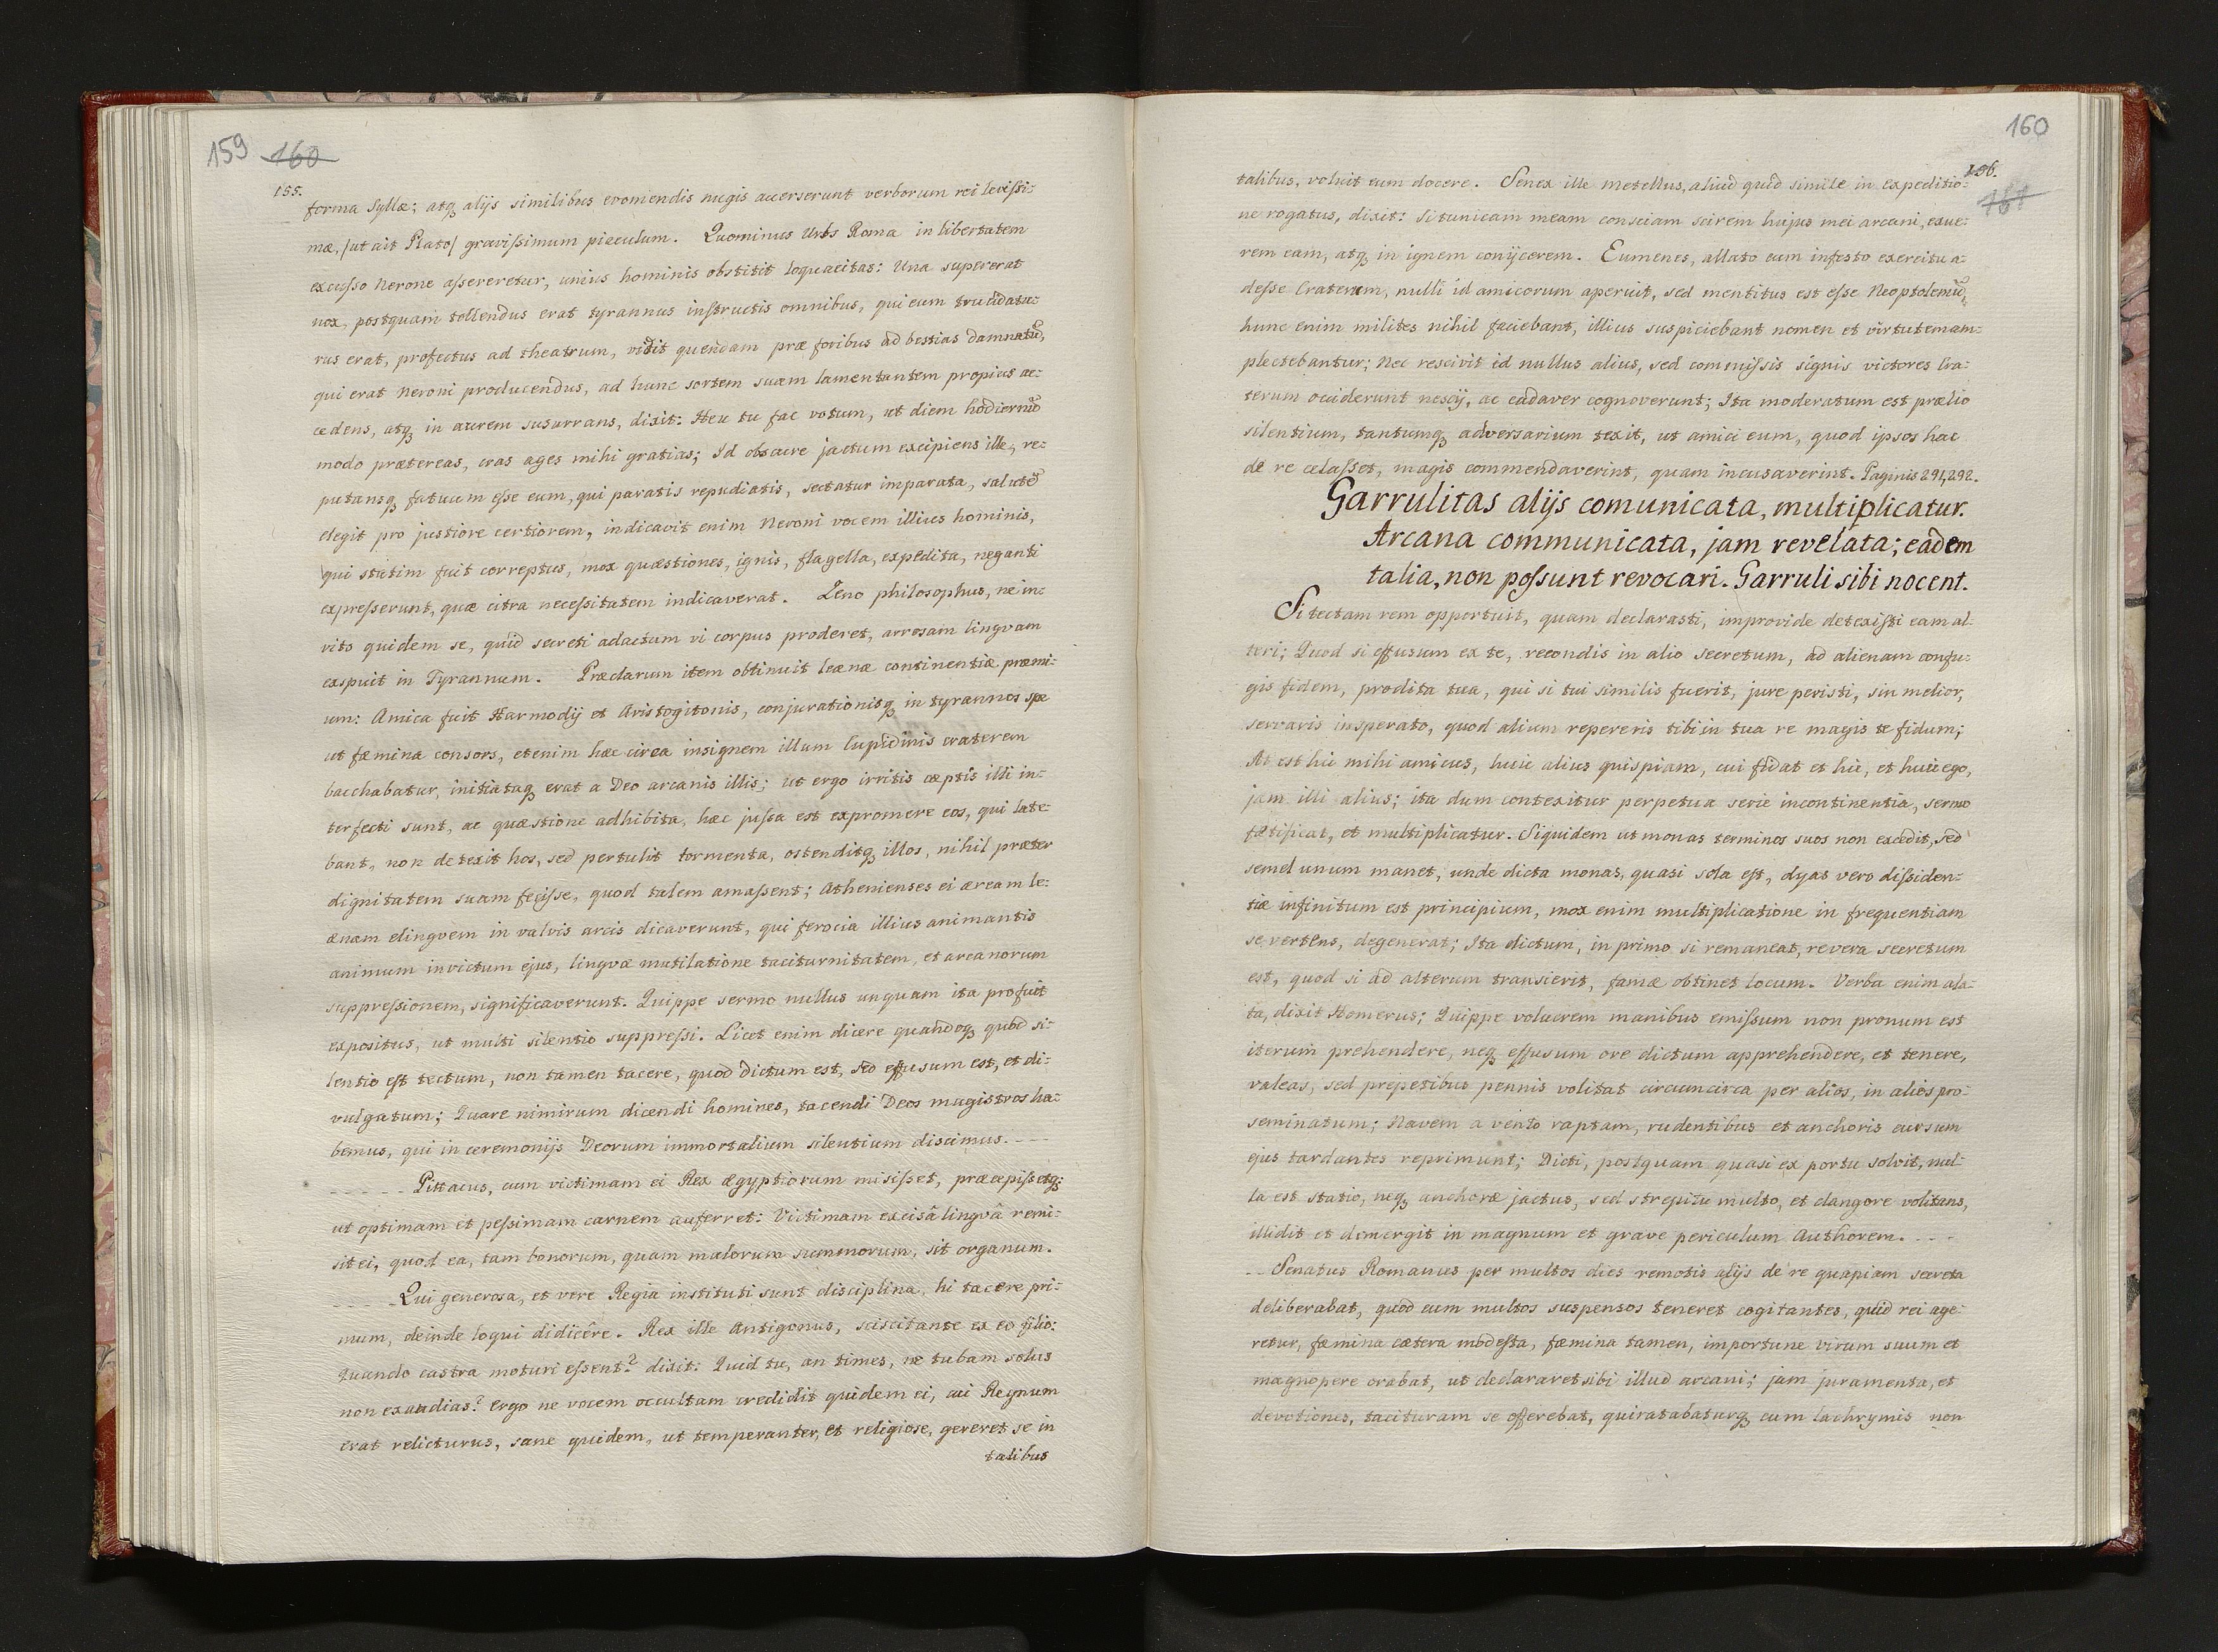 159 160
155.
forma Syllæ; atq alijs similibus evomendis nugis accerserunt verborum rei levissi-
mæ, /ut ait Plato/ gravissimum piaculum. Quominus Urbs Roma in libertatem
excusso Nerone assereretur, unius hominis obstitit loquacitas: Una supererat
nox, postquam tollendus erat tyrannus instructis omnibus, qui eum trucidatu-
rus erat, profectus ad theatrum, vidit quendam præ foribus ad bestias damnatũ,
qui erat Neroni producendus, ad hunc sortem suam lamentantem propius ac-
cedens, atq in aurem susurrans, dixit: Heu tu fac votum, ut diem hodiernũ
modo prætereas, cras ages mihi gratias; Id obscure jactum excipiens ille, re-
putansq fatuum esse eum, qui paratis repudiatis, sectatur imparata, salutẽ
elegit pro justiore certiorem, indicavit enim Neroni vocem illius hominis,
qui statim fuit correptus, mox quæstiones, ignis, flagella, expedita, neganti
expresserunt, quæ citra necessitatem indicaverat. Zeno philosophus, ne in-
vito quidem se, quid secreti adactum vi corpus proderet, arrosam lingvam
exspuit in Tyrannum. Præclarum item obtinuit leænæ continentiæ præmi-
um: Amica fuit Harmodij et Aristogitonis, conjurationisq in tyrannos spe
ut fæmina consors, etenim hæc circa insignem illum lupidinis craterem
bacchabatur, initiataq erat a Deo arcanis illis; ut ergo irritis cæptis illi in-
terfecti sunt, ac quæstione adhibita, hæc jussa est expromere eos, qui late-
bant, non detexit hos, sed pertulit tormenta, ostenditq illos, nihil præter
dignitatem suam fecisse, quod talem amassent; Athenienses ei æream le-
ænam elingvem in valvis arcis dicaverunt, qui ferocia illius animantis
animum invictum ejus, lingvæ mutilatione taciturnitatem, et arcanorum
suppressionem, significaverunt. Quippe sermo nullus unquam ita profuit
expositus, ut multi silentio suppressi. Licet enim dicere quandoq quod si-
lentio est tectum, non tamen tacere, quod dictum est, sed effusum est, et di-
vulgatum; Quare nimirum dicendi homines, tacendi Deos magistros ha-
bemus, qui in ceremonijs Deorum immortalium silentium discimus. - - -
- - - - - Pittacus, cum victimam ei Rex Ægyptiorum misisset, præcepissetq
ut optimam et pessimam carnem auferret: Victimam excisâ lingvâ remi-
sit ei, quod ea, tam bonorum, quam malorum summorum, sit organum.
- - - - - Qui generosa, et vere Regia instituti sunt disciplina, hi tacere pri-
mum, deinde loqui didicêre. Rex ille Antigonus, sciscitante ex eo filio:
Quando castra moturi essent? dixit: Quid tu, an times, ne tubam solus
non exaudias? Ergo ne vocem occultam credidit quidem ei, cui Regnum
erat relicturus, sane quidem, ut temperanter, et religiose, gereret se in
talibus
160
156.
161
talibus, voluit eum docere. Senex ille Metellus, aliud quid simile in expeditio-
ne rogatus, dixit: Si tunicam meam consciam scirem hujus mei arcani, exue-
rem eam, atq in ignem conijcerem. Eumenes, allato cum infesto exercitu a-
desse Craterum, nulli id amicorum aperuit, sed mentitus est esse Neoptolemũ,
hunc enim milites nihil faciebant, illius suspiciebant nomen et virtutem am-
plectebantur; Nec rescivit id nullus alius, sed commissis signis victores Cra-
terum occiderunt nescij, ac cadaver cognoverunt; Ita moderatum est prælio
silentium, tantumq adversarium texit, ut amici eum, quod ipsos hac
de re celasset, magis commendaverint, quam incusaverint. Paginis 291, 292.
Garrulitas alijs comunicata, multiplicatur.
Arcana communicata, jam revelata; eadem
talia, non possunt revocari. Garruli sibi nocent.
Si tectam rem opportuit, quam declarasti, improvide detexisti eam al-
teri; Quod si effusum ex te, recondis in alio secretum, ad alienam confu-
gis fidem, prodita tua, qui si tui similis fuerit, jure peristi, sin melior,
servaris insperato, quod alium repereris tibi in tua re magis te fidum;
At est hic mihi amicus, huic alius quispiam, cui fidat et hic, et huic ego,
jam illi alius; ita dum contexitur perpetua serie incontinentia, sermo
fætificat, et multiplicatur. Siquidem ut monas terminos suos non excedit, sed
semel unum manet, unde dicta monas, quasi sola est, dyas vero dissiden-
tiæ infinitum est principium, mox enim multiplicatione in frequentiam
se vertens, degenerat; Ita dictum, in primo si remaneat, revera secretum
est, quod si ad alterum transierit, famæ obtinet locum. Verba enim ala-
ta, dixit Homerus; Quippe volucrem manibus emissum non pronum est
iterum prehendere, neq effusum ore dictum apprehendere, et tenere,
valeas, sed prepetibus pennis volitat circumcirca per alios, in alios pro-
seminatum; Navem a vento raptam, rudentibus et anchoris cursum
ejus tardantes reprimunt; Dicti, postquam quasi ex portu solvit, nul-
la est statio, neq anchoræ jactus, sed strepitu multo, et clangore volitans,
illidit et demergit in magnum et grave periculum Authorem. - - -
- - Senatus Romanus per multos dies remotis alijs de re quapiam secreta
deliberabat, quod cum multos suspensos teneret cogitantes, quid rei age-
retur, fæmina cætera modesta, fæmina tamen, importune virum suum et
magnopere orabat, ut declararet sibi illud arcani; jam juramenta, et
devotiones, tacituram se offerebat, quiratabaturq cum lachrymis non